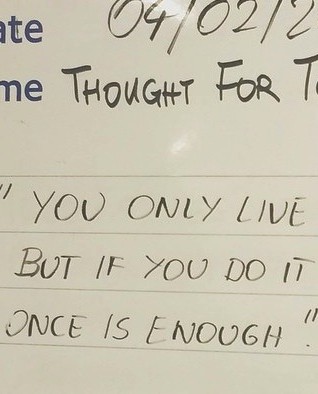 ate 04/02/2
me THOUGHT FOR T
" YOU ONLY LIVE
BUT IF YOU DO IT
ONCE IS ENOUGH".